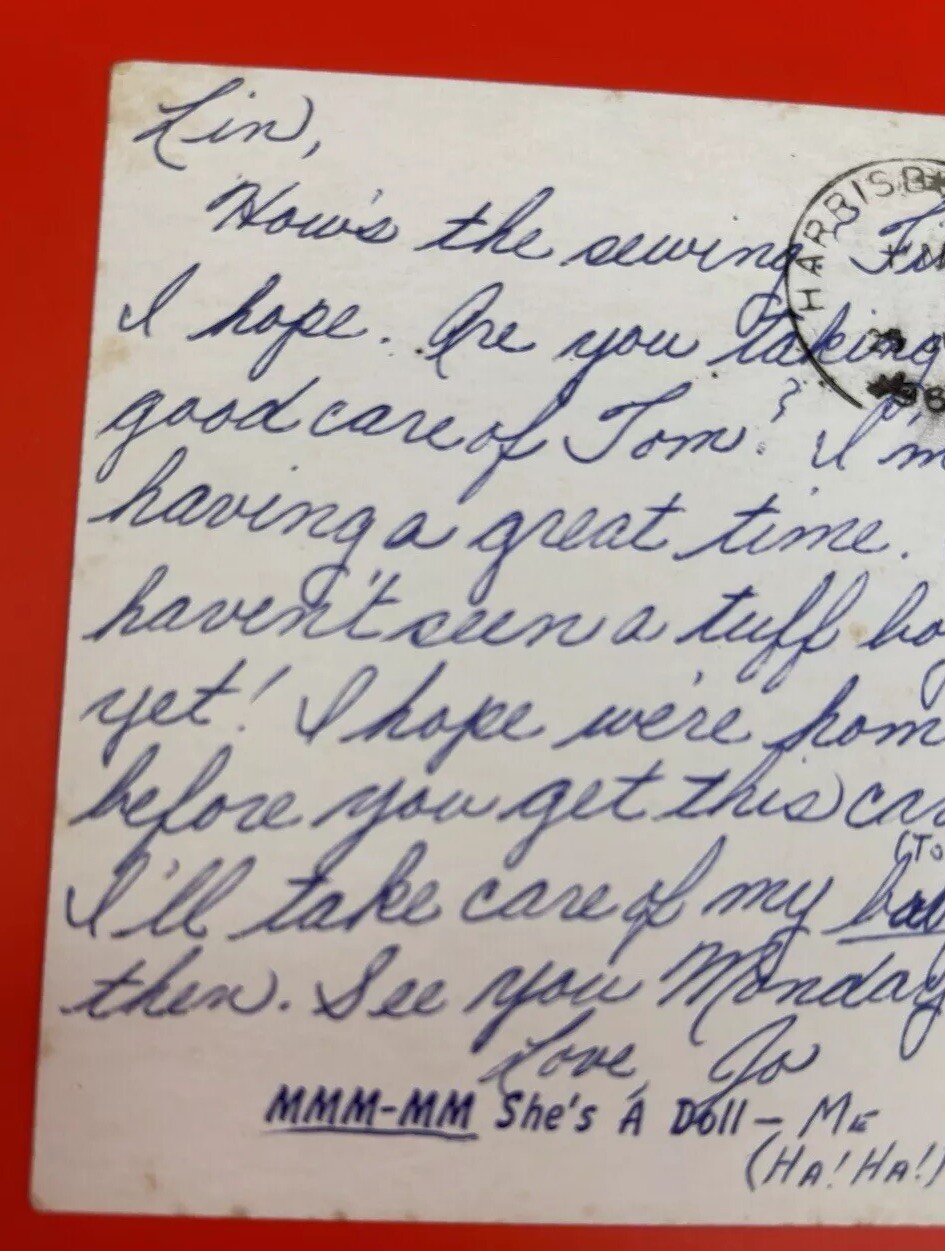 Lin,
How's the sewing
I hope. Are you taking
good care of Tom? I'm
having a great time.
haven't seen a tuff
yet! I hope we're
before you get this
I'll take care of my
then. See you Monday
Love, Jo
MMM-MM She's A Doll - ME
(HA! HA!)
HARRISB